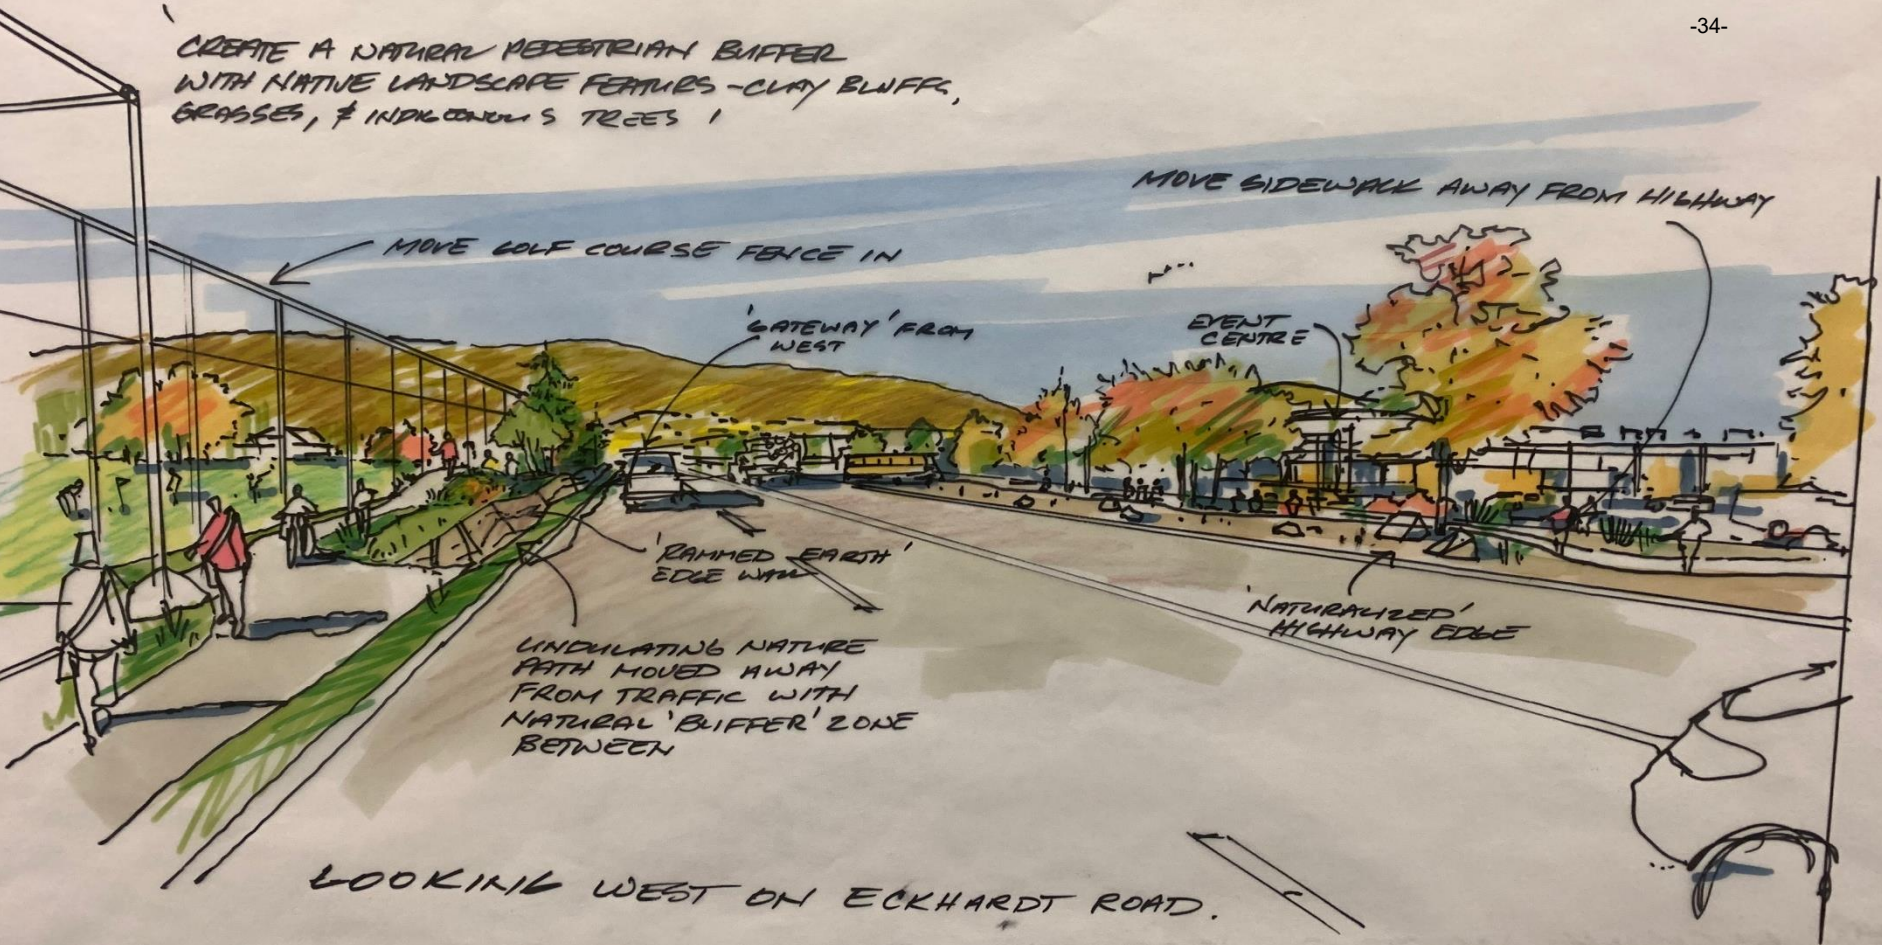 -34-
CREATE A NATURAL PEDESTRIAN BUFFER
WITH NATIVE LANDSCAPE FEATURS - CLAY BLUFFS,
GRASSES, & INDIGENOUS TREES !
MOVE SIDEWALK AWAY FROM HIGHWAY
MOVE GOLF COURSE FENCE IN
'GATEWAY' FROM
WEST
EVENT
CENTRE
'RAMMED EARTH'
EDGE WALL
'NATURALIZED'
HIGHWAY EDGE
UNDULATING NATURE
PATH MOVED AWAY
FROM TRAFFIC WITH
NATURAL 'BUFFER' ZONE
BETWEEN
LOOKING WEST ON ECKHARDT ROAD.